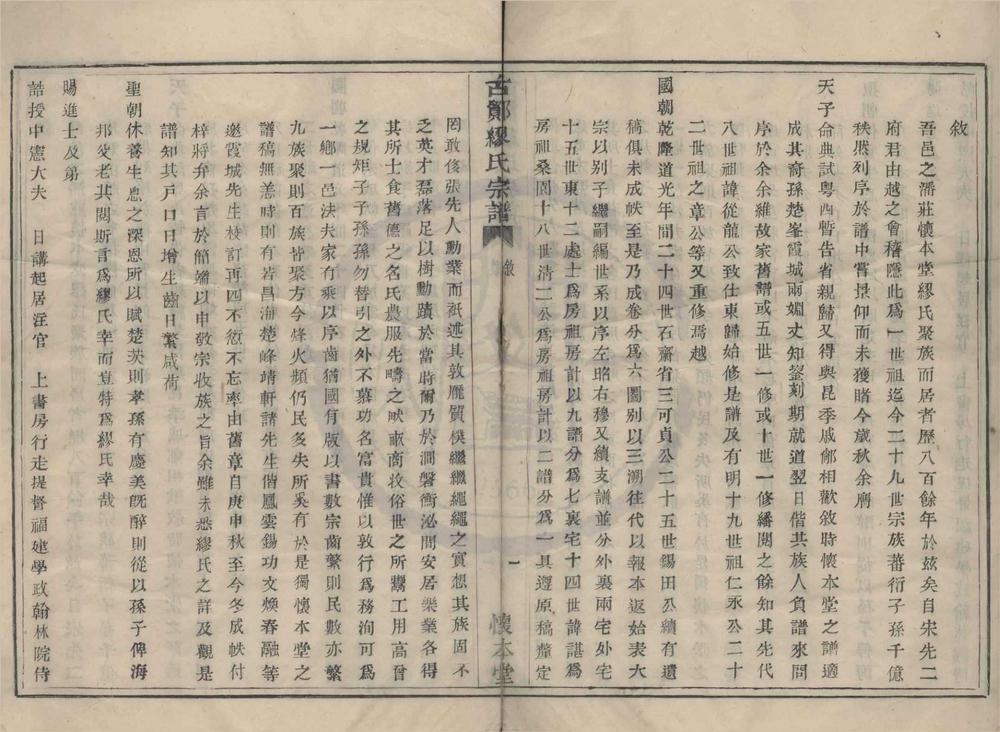 敘
吾邑之潘莊懷本堂繆氏聚族而居者歷八百餘年於茲矣自宋先二
府君由越之會稽隱此為一世祖迄今二十九世宗族蕃衍子孫千億
秩然列序於譜中嘗景仰而未獲睹今歲秋余膺
天子命典試粵西暫告省親歸又得與昆季戚鄉相歡敘時懷本堂之譜適
成其裔孫楚峯霞城兩姻丈知签刻期就道翌日偕其族人負譜來問
序於余余維故家舊譜或五世一修或十世一修繙閱之餘知其先代
八世祖諱從龍公致仕東歸始修是譜及有明十九世祖仁永公二十
二世祖之章公等又重修焉越
國朝乾隆道光年間二十四世石齋省三可貞公二十五世錫田公續有遺
稿俱未成帙至是乃成卷分為六圖別以三溯往代以報本返始表大
宗以別子繼嗣緆世系以序左昭右穆又續支譜並分外裏兩宅外宅
十五世東十二處士為房祖房計以九譜分為七裏宅十四世諱諶為
房祖桑園十八世清二公為房祖房計以二譜分為一具遵原稿釐定
古鄮繆氏宗譜
敘
一
懷本堂
罔敢侈張先人勳業而祇述其敦龐質樸繼繼繩繩之實想其族固不
乏英才磊落足以樹勳蹟於當時爾乃於澗磐衡泌間安居樂業各得
其所士食舊德之名氏農服先疇之畎畝商牧俗世之所鬻工用高曾
之規矩子子孫孫勿替引之外不慕功名富貴惟以敦行為務洵可為
一鄉一邑法夫家有乘以序齒猶國有版以書數宗齒繁則民數亦繁
九族聚則百族皆聚方今烽火頻仍民多失所奚有於是獨懷本堂之
譜稿無恙時則有若昌海楚峰靖軒諸先生偕鳳雲錫功文煥春融等
邀霞城先生校訂再四不愆不忘率由舊章自庚申秋至今冬成帙付
梓將弁余言於簡端以申敬宗收族之旨余雖未悉繆氏之詳及觀是
譜知其戶口日增生齒日繁咸荷
聖朝休養生息之深恩所以賦楚茨則孝孫有慶美既醉則從以孫子俾海
邦父老共聞斯言為繆氏幸而豈特為繆氏幸哉
賜進士及第
誥授中憲大夫 日講起居注官 上書房行走提督福建學政翰林院侍